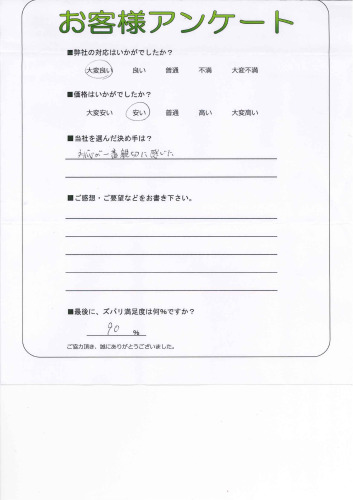 お客様アンケート
■弊社の対応はいかがでしたか？
大変良い 良い 普通 不満 大変不満
■価格はいかがでしたか？
大変安い 安い 普通 高い 大変高い
■当社を選んだ決め手は？
対応が一番親切に感じた
■ご感想・ご要望などをお書き下さい。
■最後に、ズバリ満足度は何％ですか？
90 ％
ご協力頂き、誠にありがとうございました。